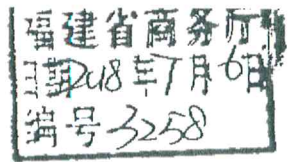 福建省商务厅
日期2018年7月6日
编号3258